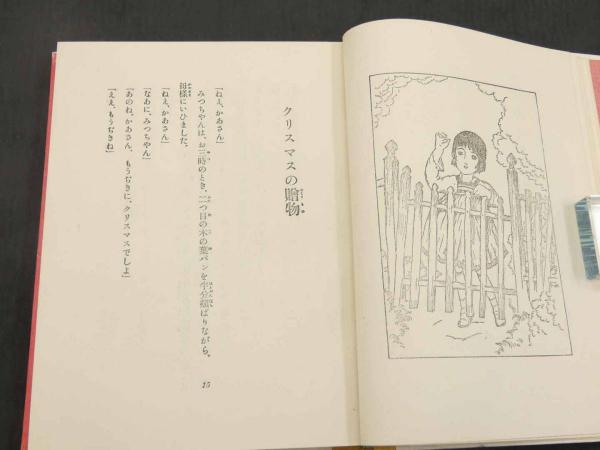 クリスマスの贈物
「ねえ、かあさん」
みつちやんは、お三時のとき、二つ目の木の葉パンを半分頬ばりながら、
母様にいひました。
「ねえ、かあさん」
「なあに、みつちやん」
「あのね、かあさん、もうぢきに、クリスマスでしよ」
「ええ、もうぢきね」
15